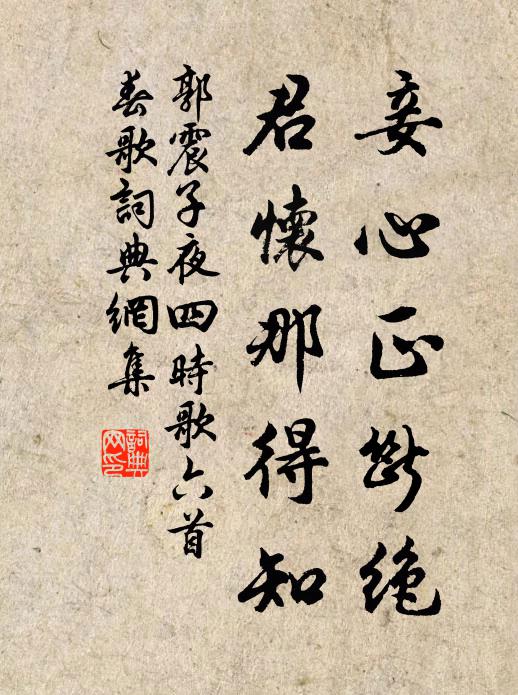 妾心正断絶
君懷那得知
郭震子夜四時歌六首
春歌詞典網集
詞典網印